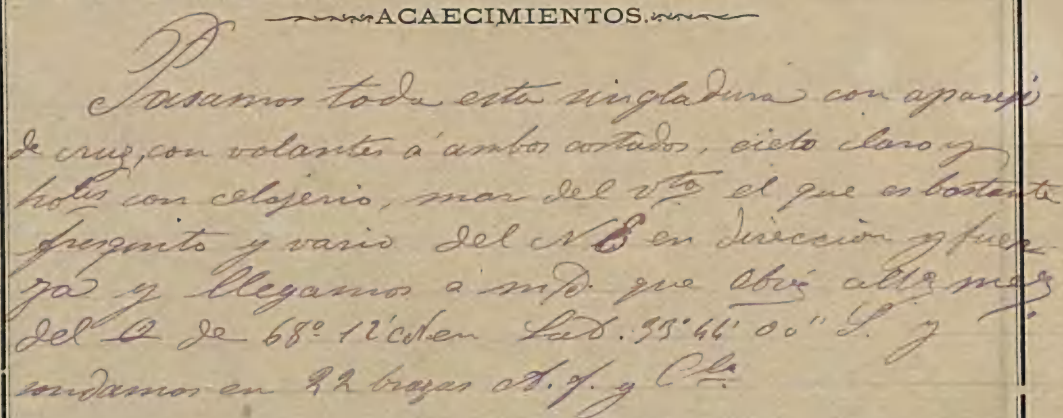 ACAECIMIENTOS.
Pasamos toda esta singladura con aparejo
de cruz, con volantes á ambos costados, cielo claro y
hotes con celajeria, mar del vto el que es bastante
fresquito y vario del NE en dirección y fuer
za y llegamos a m/d. que obsé altz merz
del O de 68° 12' en Lat. 33° 44' 00" S. y
sondamos en 22 brazas A. f. y Cla